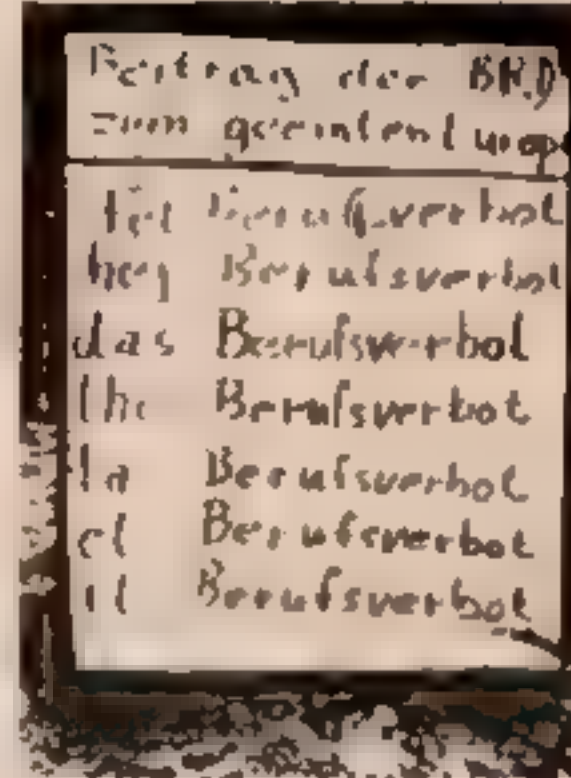 Beitrag der BRD
zum
Berufsverbot
Berufsverbot
das Berufsverbot
the Berufsverbot
la Berufsverbot
el Berufsverbot
il Berufsverbot